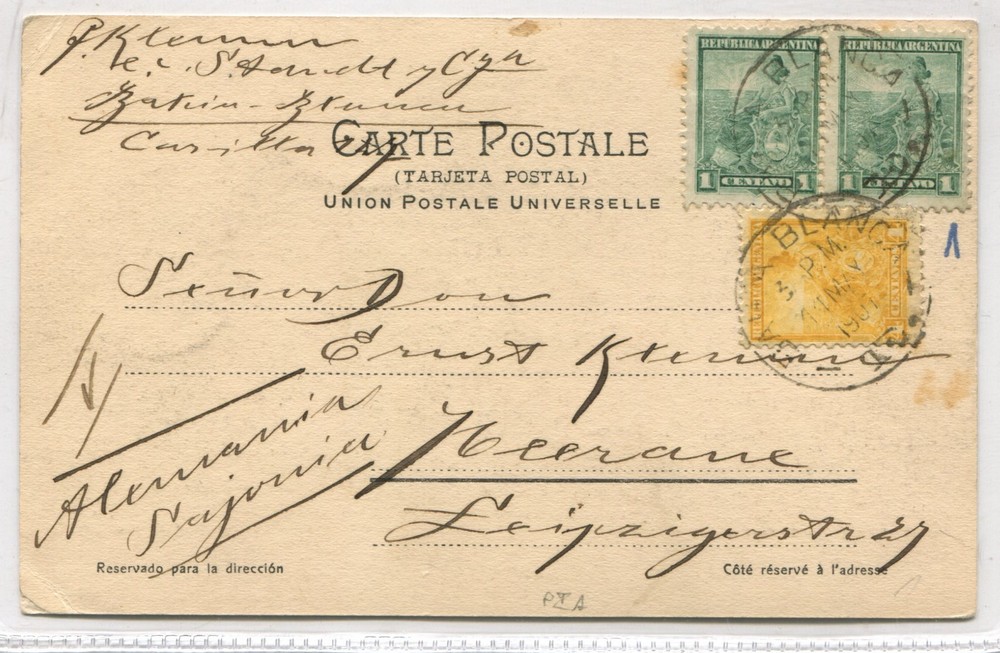 P. Klemm
Bahia-Blanca
Casilla
CARTE POSTALE
(TARJETA POSTAL)
UNION POSTALE UNIVERSELLE
REPUBLICA ARGENTINA
1 CENTAVO 1
REPUBLICA ARGENTINA
1 CENTAVO 1
BAHIA BLANCA
BAHIA BLANCA
3 P.M.
1901
1
Señor Don
Ernst Klemm
Meerane
Leipzigerstr 27
Alemania
Sajonia
Reservado para la dirección
Côté réservé à l'adresse